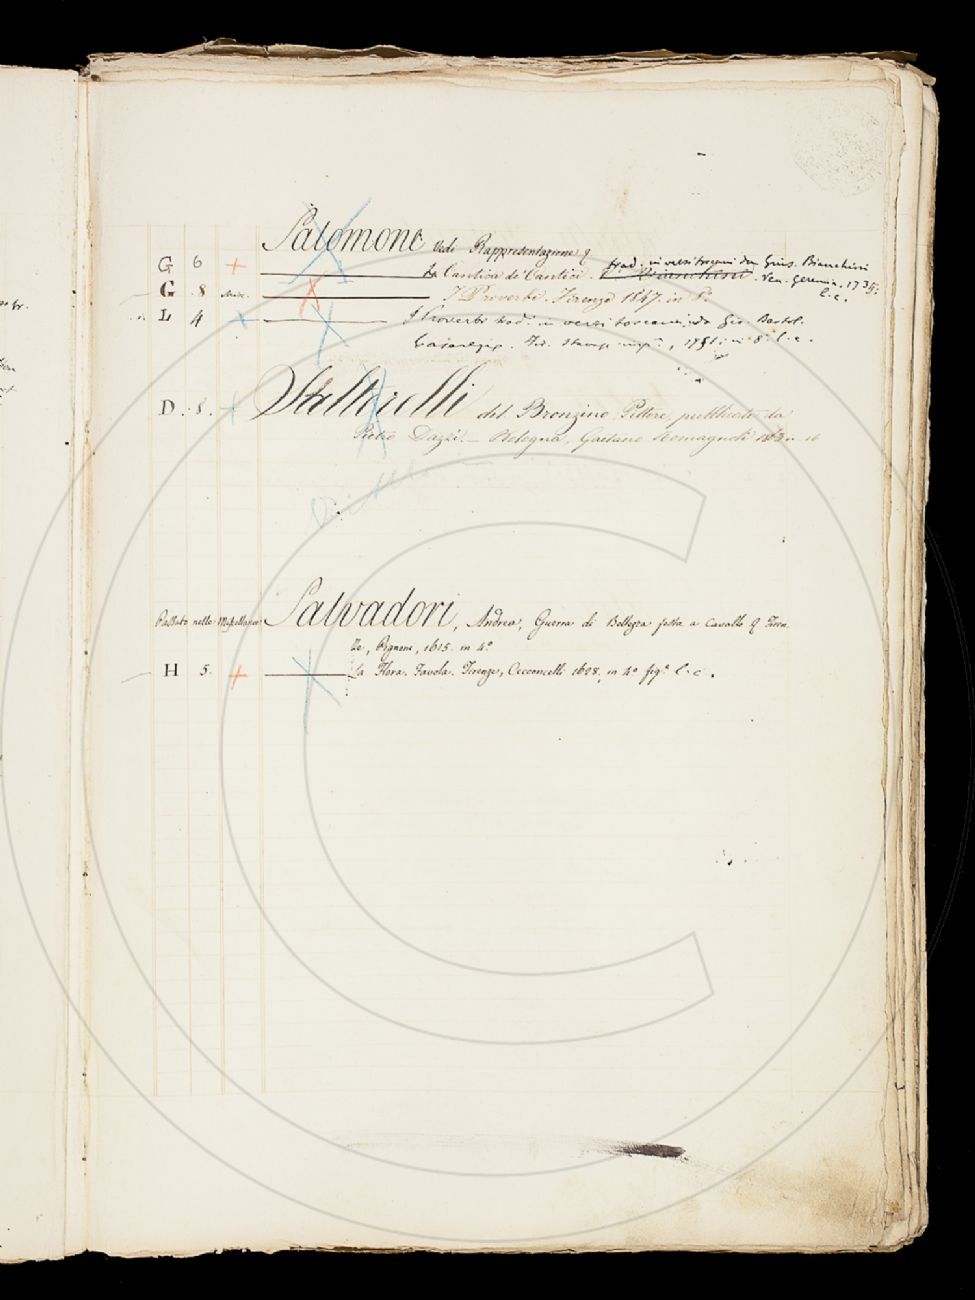 Salomone Vedi Rappresentazione
G 6 + La Cantica de' Cantici. trad. in versi toscani da Gius. Bianchini
Ven. Geremia. 1735.
G 8 I Proverbi. Firenze 1847. in 8.
L 4 + I Proverbi trad. in versi toscani da Gio. Bartol.
Casaregi. Fir. Stamp. imp., 1751. in 8. l. c.
D. 8. + Salterelli del Bronzino Pittore, pubblicato da
Pietro Dazzi. — Bologna, Gaetano Romagnoli 1863 in 16
Passato nelle Miscellanee Salvadori, Andrea, Guerra di Bellezza festa a cavallo Firen
ze, Pignoni, 1615. in 4.º
H 5. + La Flora. Favola. Firenze, Cecconcelli 1628, in 4º fig. l. c.